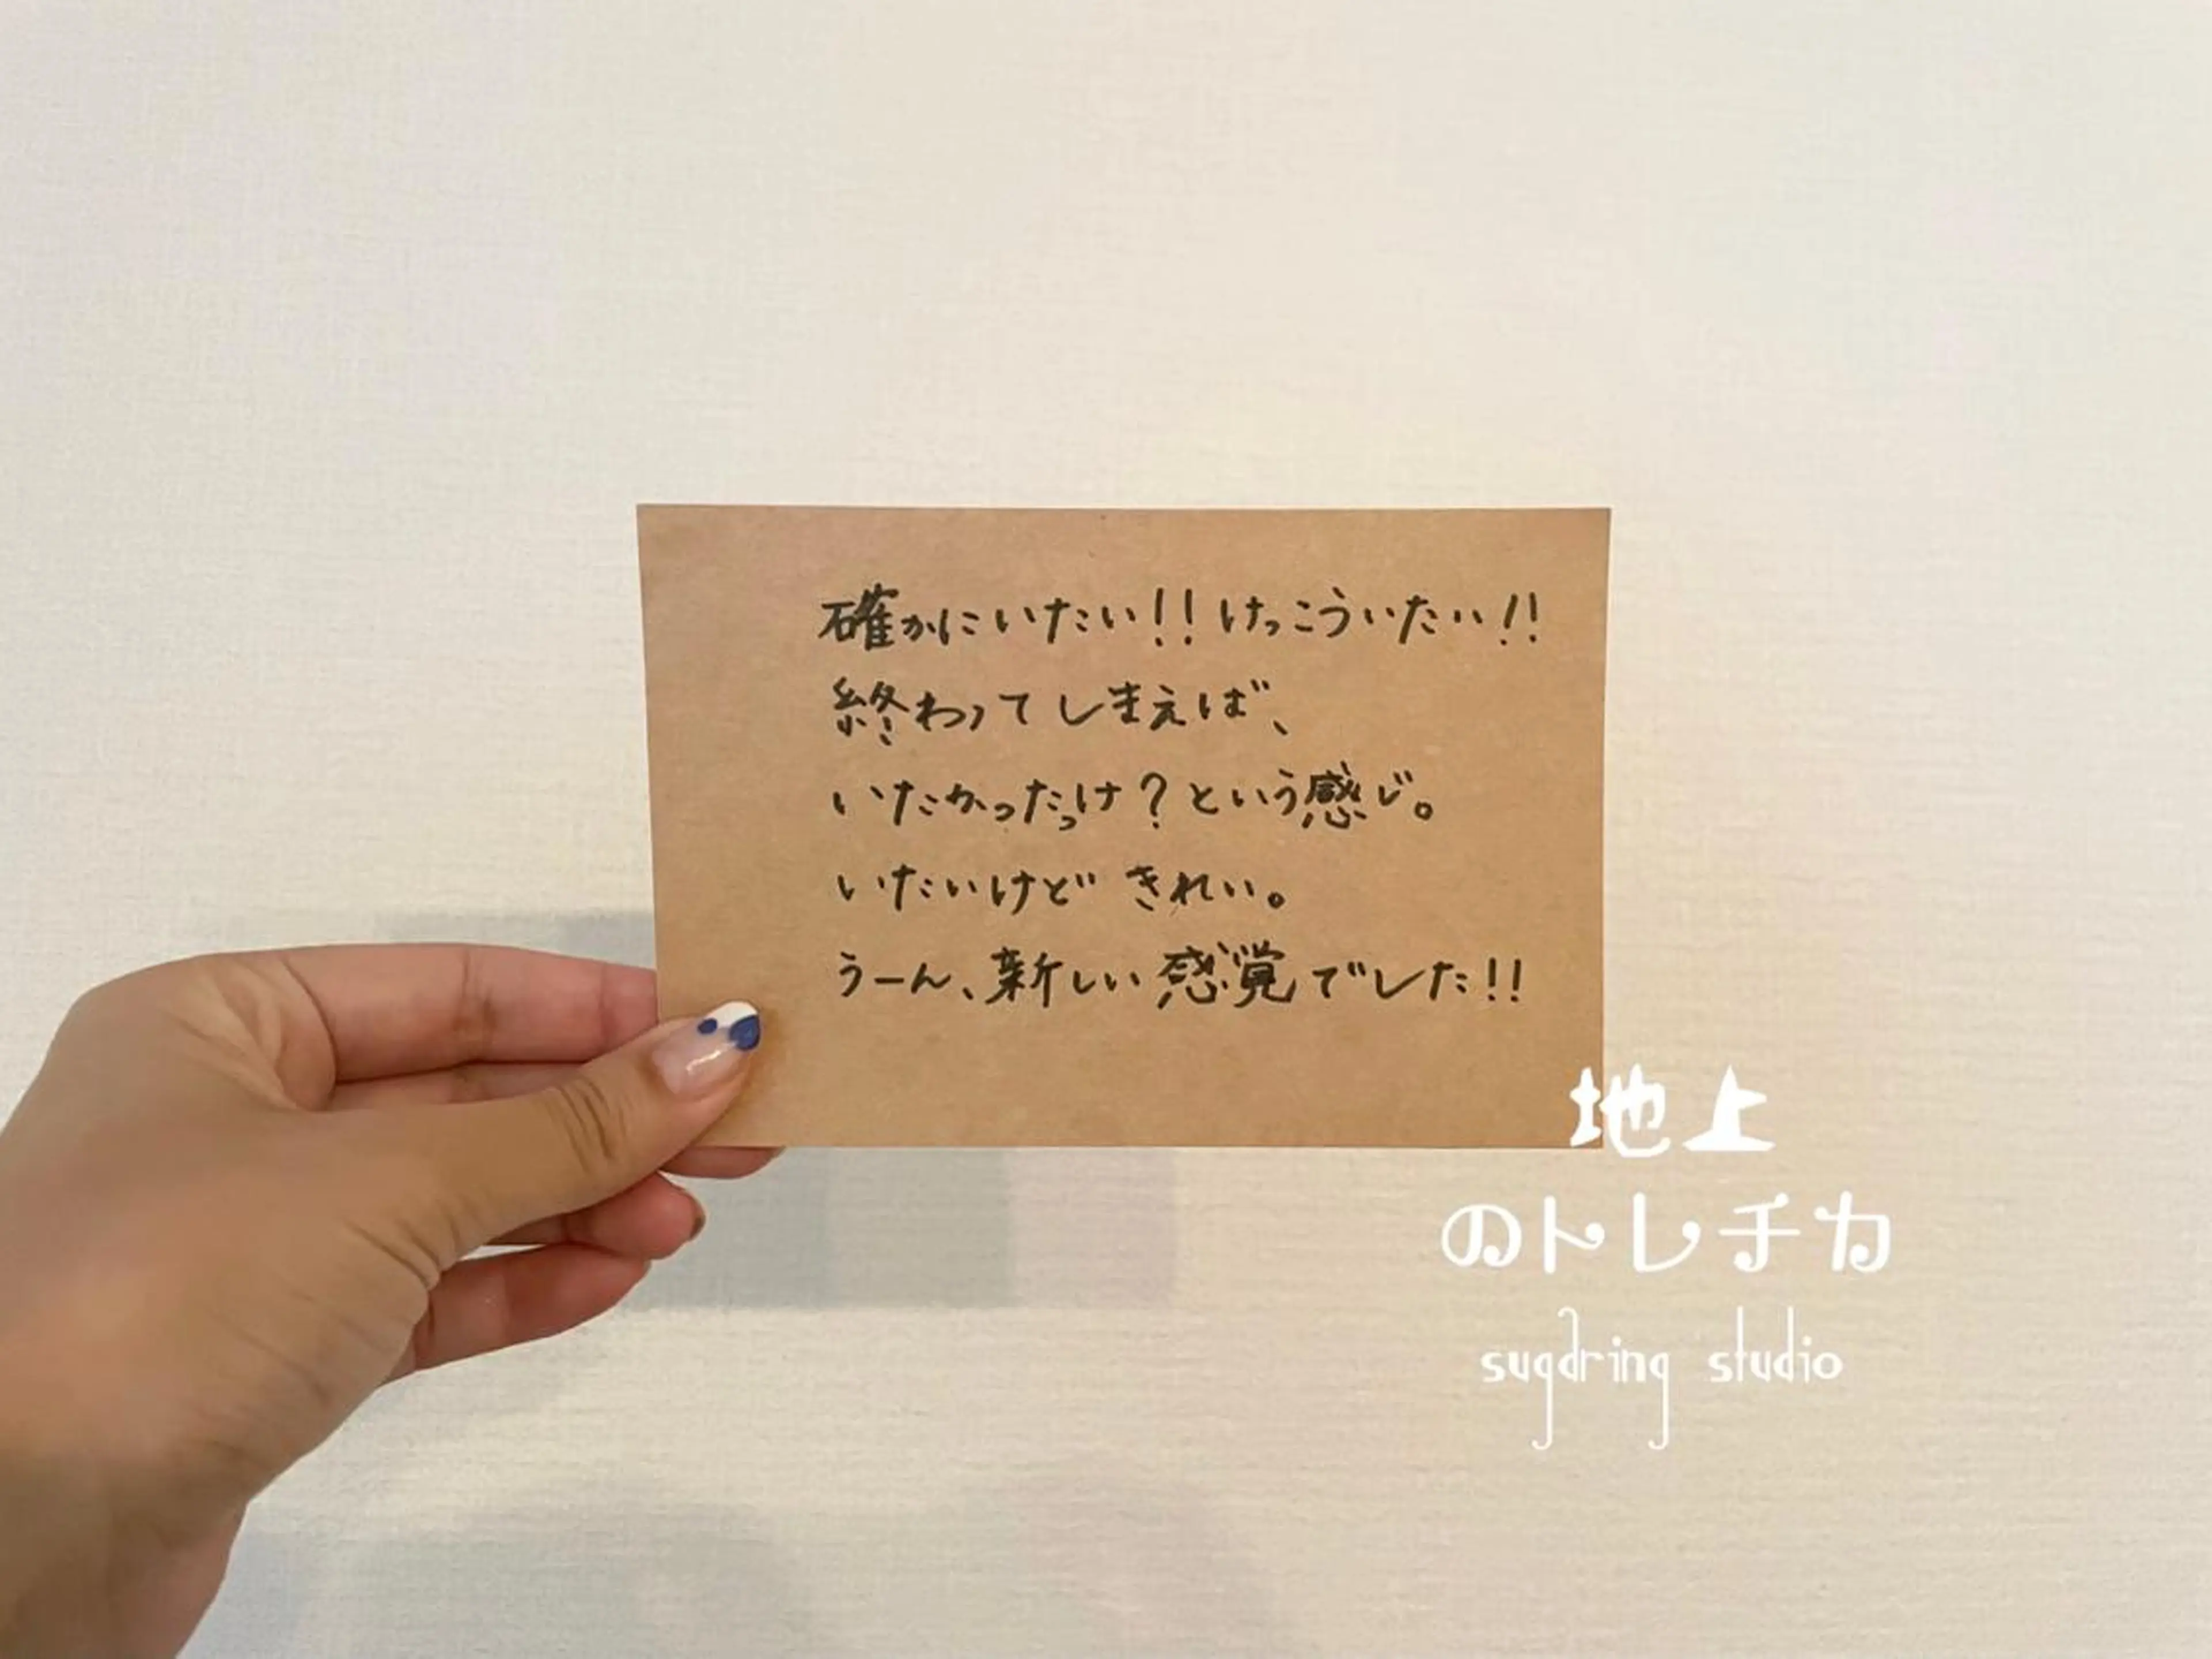 確かにいたい!! けっこういたい!!
終わってしまえば、
いたかったっけ?という感じ。
いたいけど きれい。
うーん、新しい感覚でした!!
地上
のトレチカ
sugaring studio